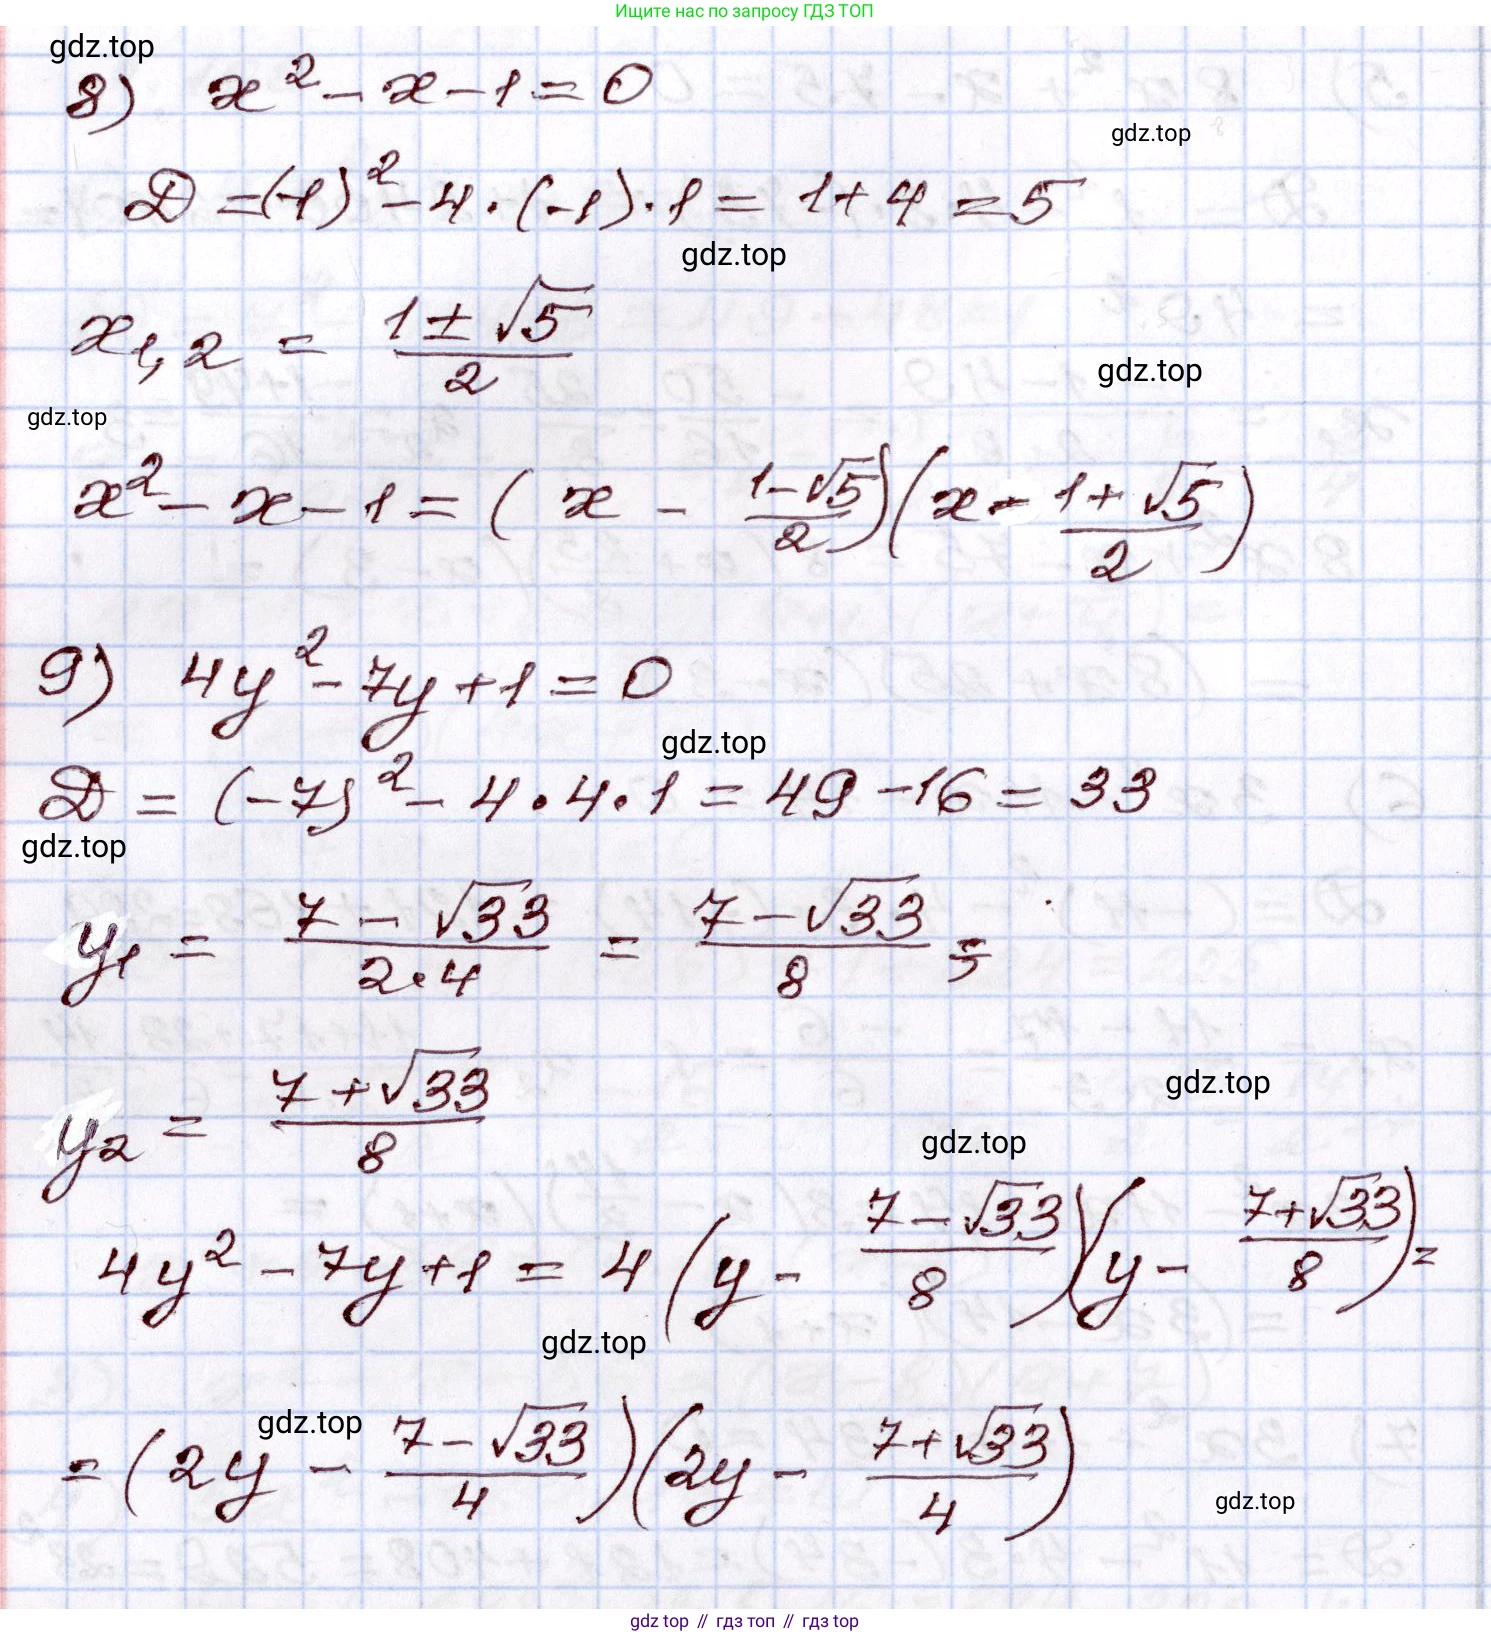 Ищите нас по запросу ГДЗ ТОП
gdz.top
8) x² - x - 1 = 0
gdz.top
D = (-1)² - 4 · (-1) · 1 = 1 + 4 = 5
gdz.top
x₁,₂ = (1 ± √5)/2
gdz.top
gdz.top
x² - x - 1 = (x - (1 - √5)/2)(x - (1 + √5)/2)
9) 4y² - 7y + 1 = 0
gdz.top
D = (-7)² - 4 · 4 · 1 = 49 - 16 = 33
gdz.top
y₁ = (7 - √33)/(2 · 4) = (7 - √33)/8 ;
gdz.top
y₂ = (7 + √33)/8
gdz.top
4y² - 7y + 1 = 4(y - (7 - √33)/8)(y - (7 + √33)/8) =
gdz.top
gdz.top
= (2y - (7 - √33)/4)(2y - (7 + √33)/4)
gdz.top
gdz top // гдз топ // гдз top